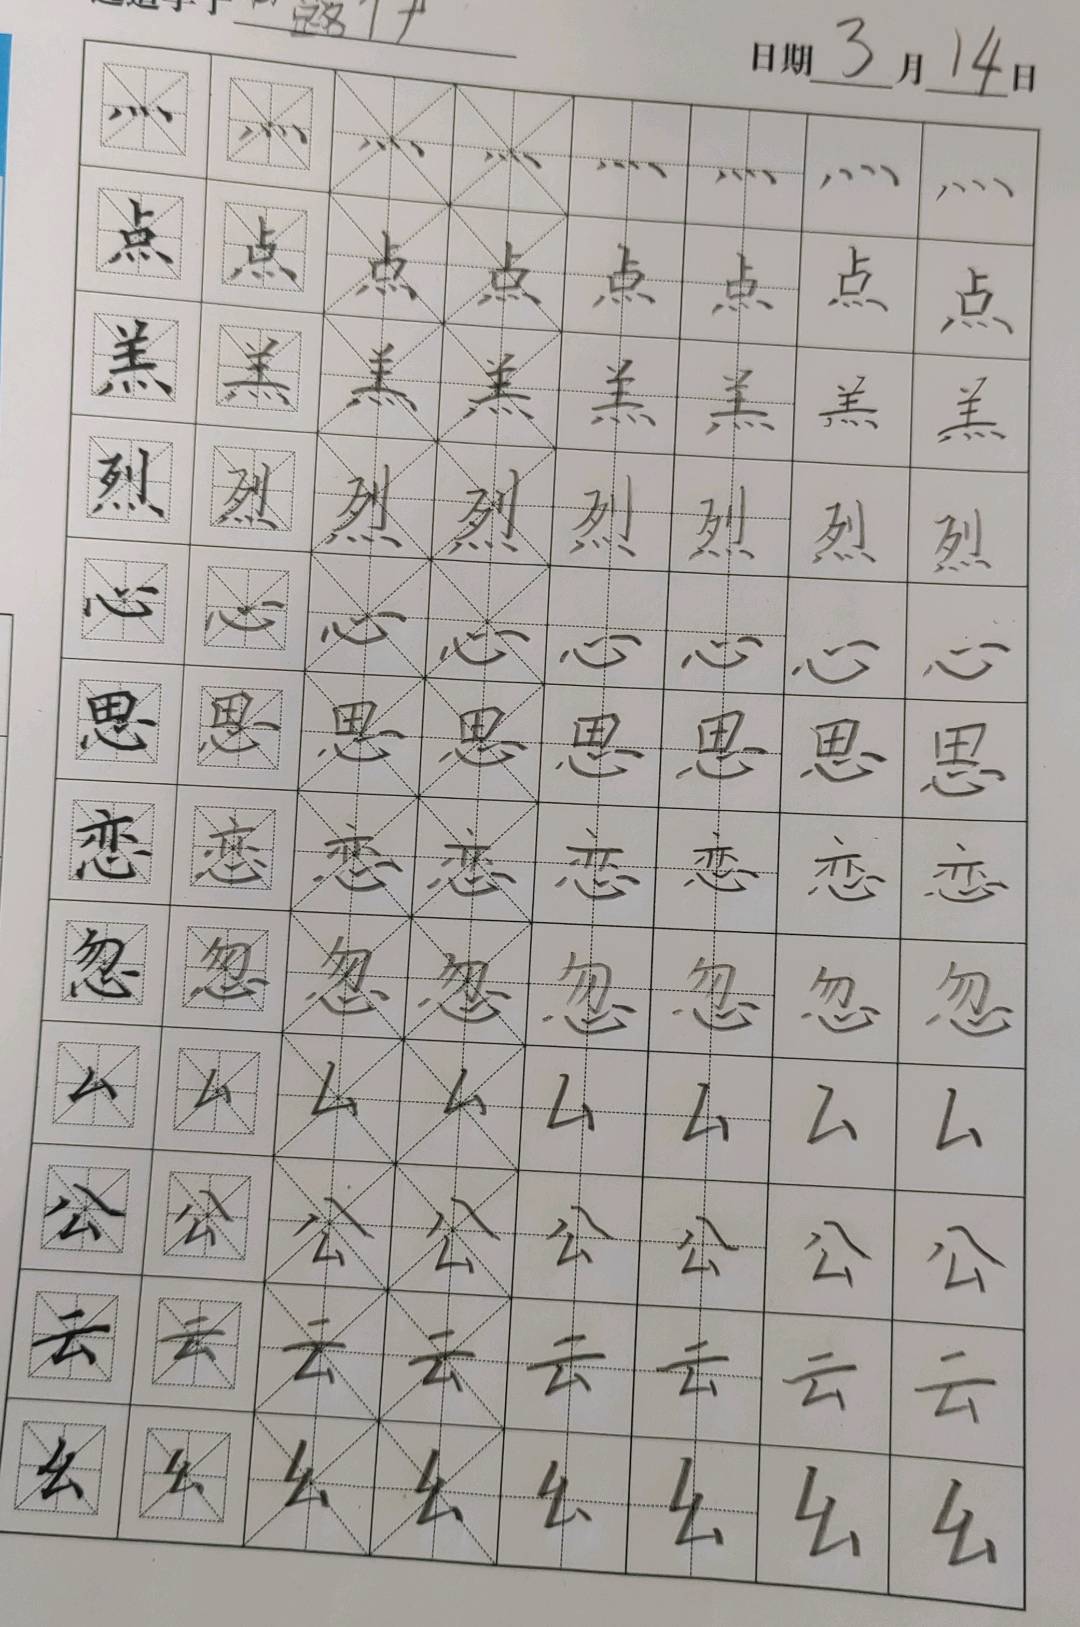 日期 3 月 14 日
灬 灬 灬 灬 灬 灬 灬 灬
点 点 点 点 点 点 点 点
羔 羔 羔 羔 羔 羔 羔 羔
烈 烈 烈 烈 烈 烈 烈 烈
心 心 心 心 心 心 心 心
思 思 思 思 思 思 思 思
恋 恋 恋 恋 恋 恋 恋 恋
忽 忽 忽 忽 忽 忽 忽 忽
厶 厶 厶 厶 厶 厶 厶 厶
公 公 公 公 公 公 公 公
云 云 云 云 云 云 云 云
幺 幺 幺 幺 幺 幺 幺 幺